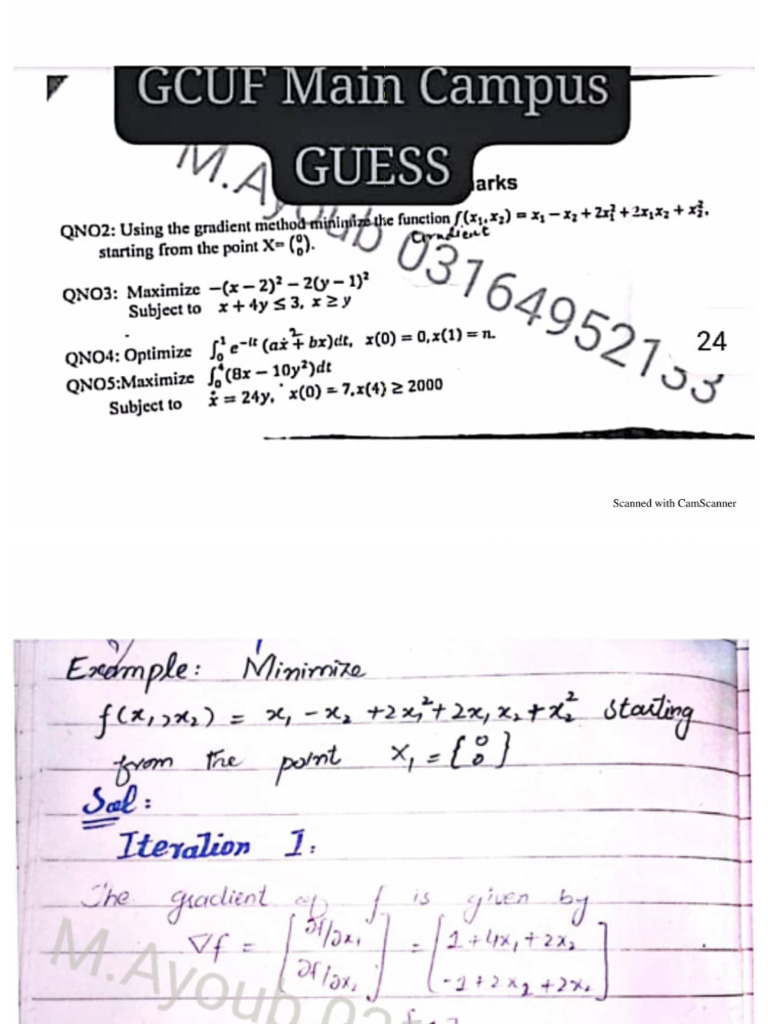 GCUF Main Campus
GUESS
arks
QNO2: Using the gradient method minimize the function f(x₁,x₂) = x₁ − x₂ + 2x₁² + 2x₁x₂ + x₂²,
Gradient
starting from the point X= (0 0).
QNO3: Maximize −(x − 2)² − 2(y − 1)²
Subject to x + 4y ≤ 3, x ≥ y
QNO4: Optimize ∫₀¹ e^(−it) (aẋ² + bx)dt, x(0) = 0,x(1) = n.
24
QNO5:Maximize ∫₀⁴(8x − 10y²)dt
Subject to ẋ = 24y, x(0) = 7,x(4) ≥ 2000
M.Ayoub 03164952133
Scanned with CamScanner
Example: Minimize
f(x₁,x₂) = x₁ − x₂ + 2x₁² + 2x₁x₂ + x₂² starting
from the point X₁ = {0 0}
Sol:
Iteration 1:
The gradient of f is given by
∇f = [∂f/∂x₁ ∂f/∂x₂] = [1 + 4x₁ + 2x₂ -1 + 2x₂ + 2x₁]
M.Ayoub 03